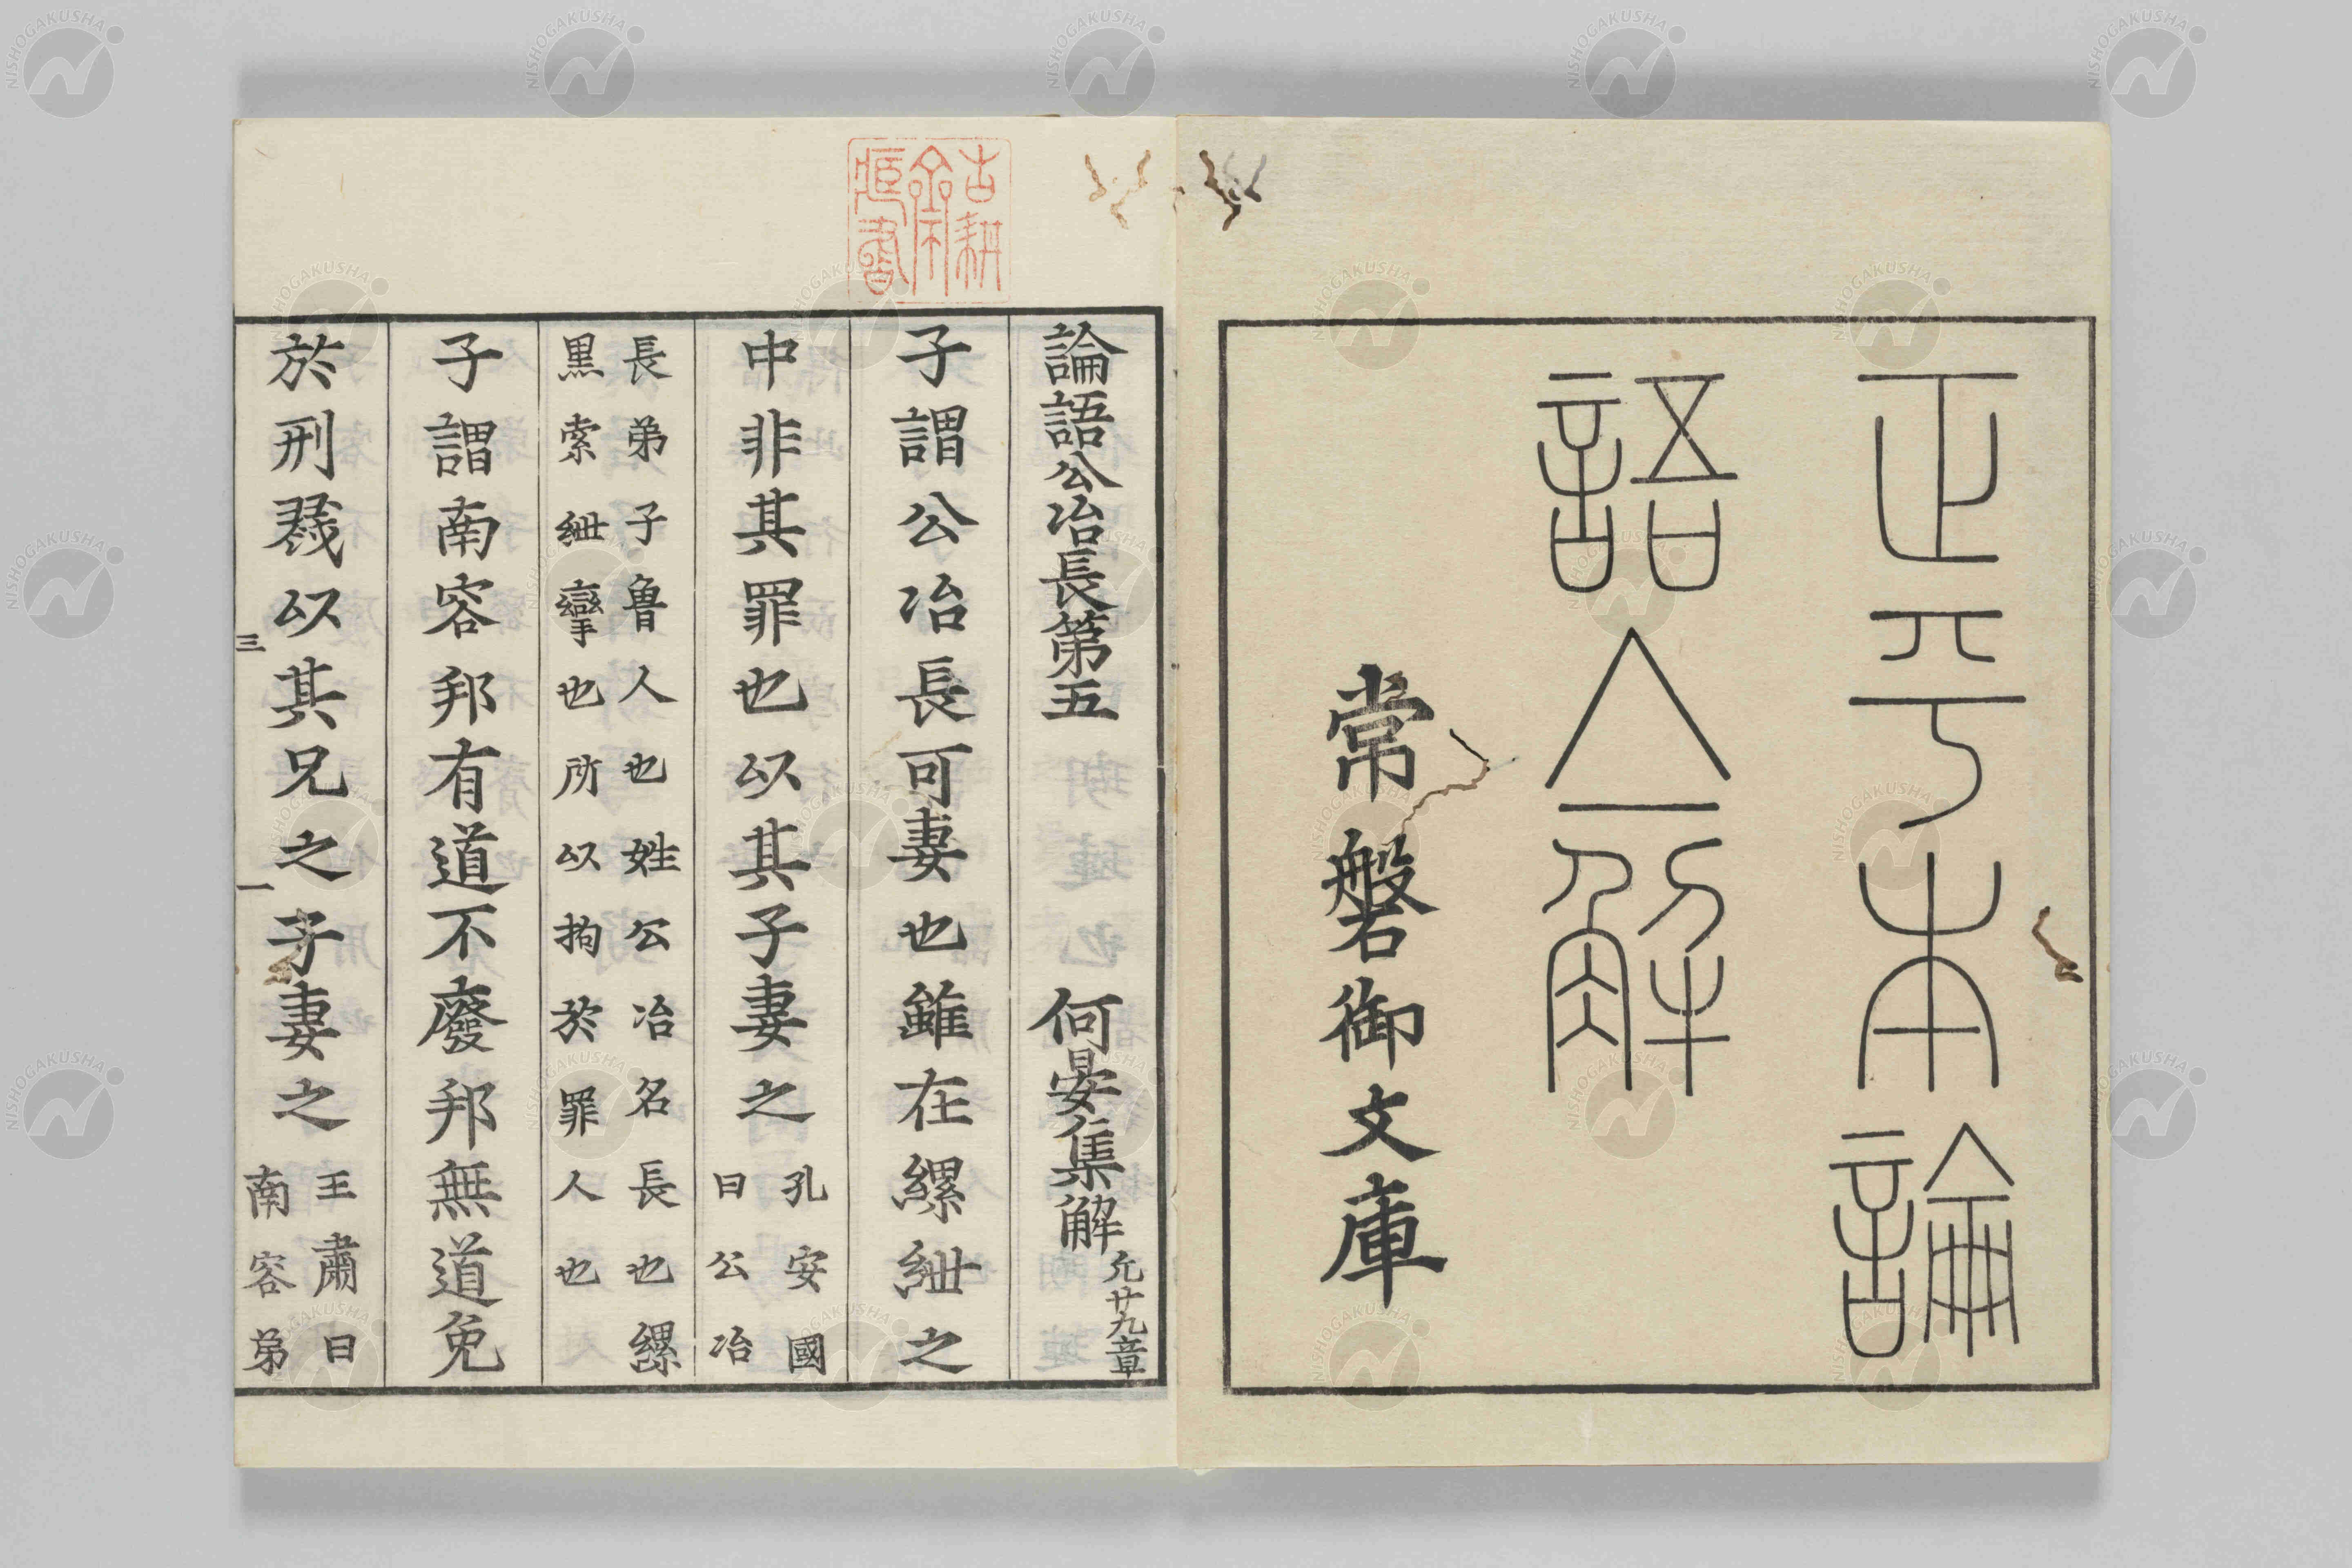 正平本論
語亼解
常磐御文庫
論語公冶長第五 何晏集解 允廿九章
子謂公冶長可妻也雖在縲紲之
中非其罪也以其子妻之
孔安國
曰公冶
長弟子魯人也姓公冶名長也縲
黒索紲攣也所以拘於罪人也
子謂南容邦有道不廢邦無道免
於刑戮以其兄之子妻之
王肅曰
南容弟
三
一
NISHOGAKUSHA